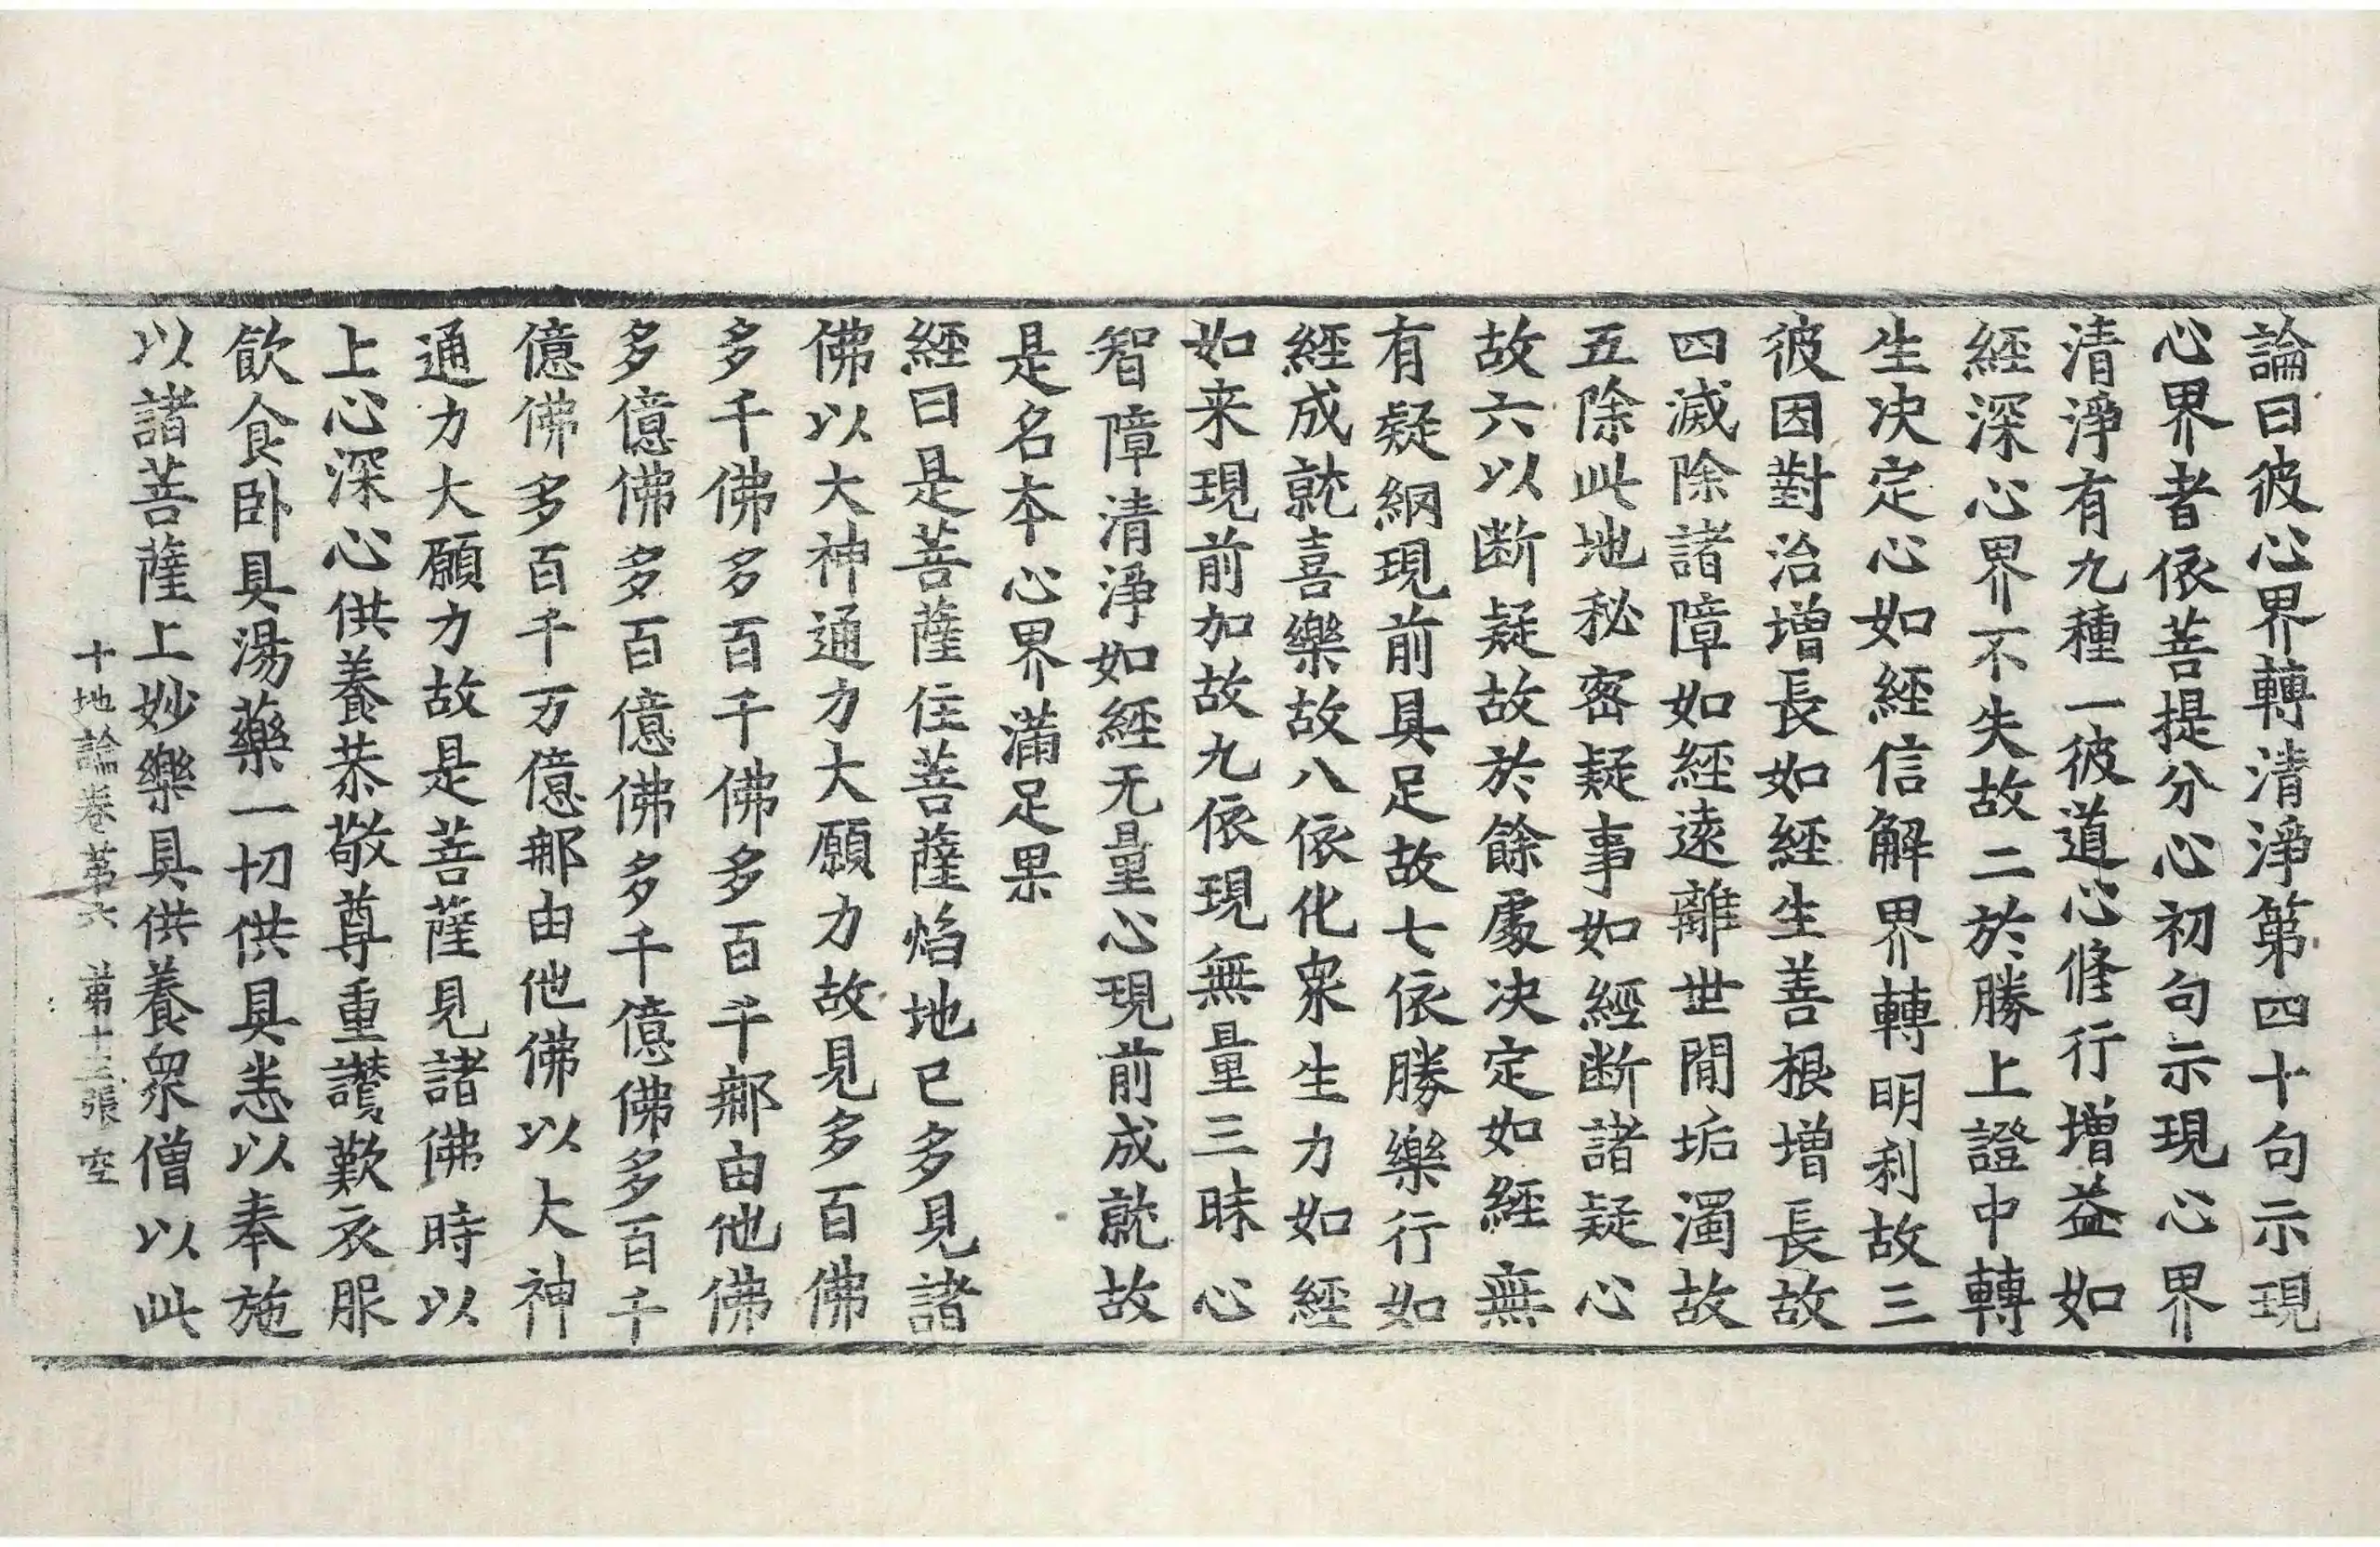 論曰彼心界轉清淨第四十句示現
心界者依菩提分心初句示現心界
清淨有九種一彼道心修行增益如
經深心界不失故二於勝上證中轉
生決定心如經信解界轉明利故三
彼因對治增長如經生善根增長故
四滅除諸障如經遠離世間垢濁故
五除此地秘密疑事如經断諸疑心
故六以断疑故於餘處决定如經無
有疑網現前具足故七依勝樂行如
經成就喜樂故八依化衆生力如經
如来現前加故九依現無量三昧心
智障清淨如經无量心現前成就故
是名本心界滿足果
經曰是菩薩住菩薩焰地已多見諸
佛以大神通力大願力故見多百佛
多千佛多百千佛多百千那由他佛
多億佛多百億佛多千億佛多百千
億佛多百千万億那由他佛以大神
通力大願力故是菩薩見諸佛時以
上心深心供養恭敬尊重讚歎衣服
飲食卧具湯藥一切供具悉以奉施
以諸菩薩上妙樂具供養衆僧以此
十地論卷苐六 苐十三張 空